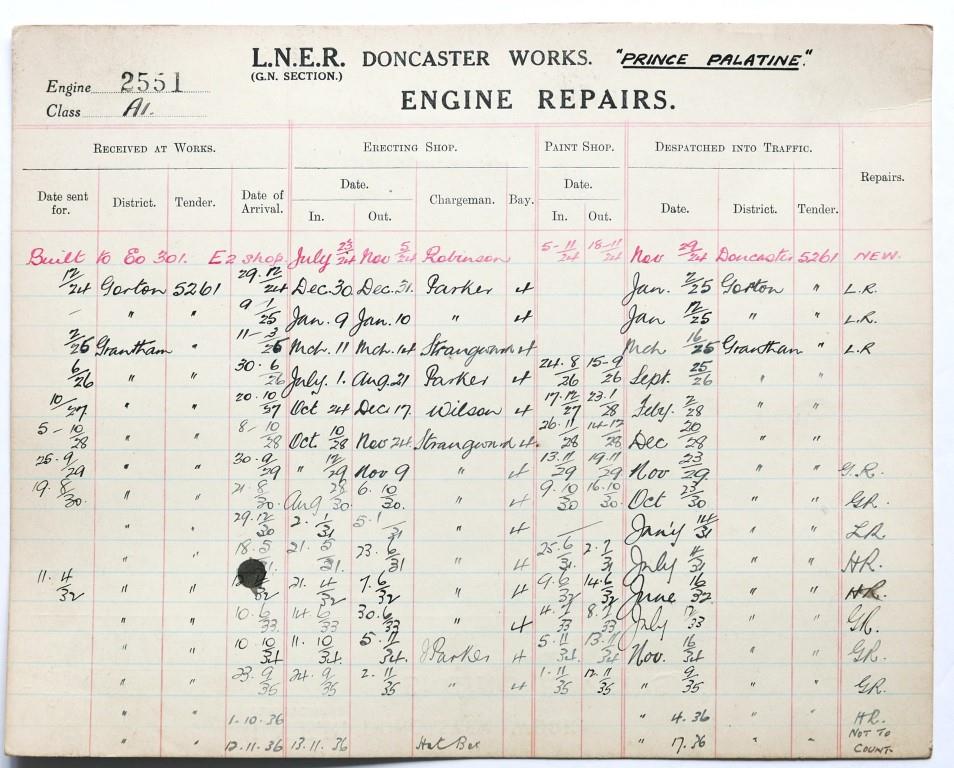 L.N.E.R. DONCASTER WORKS. "PRINCE PALATINE".
(G.N. SECTION.)
Engine 2551
Class A1.
ENGINE REPAIRS.
RECEIVED AT WORKS. ERECTING SHOP. PAINT SHOP. DESPATCHED INTO TRAFFIC. Repairs.
Date sent for. District. Tender. Date of Arrival. Date. In. Out. Chargeman. Bay. Date. In. Out. Date. District. Tender.
Built to Eo 301. E2 shop. July 23/24 Nov 5/24 Robinson 5-11/24 18-11/24 Nov 29/24 Doncaster 5261 NEW.
12/24 Gorton 5261 29.12/24 Dec. 30 Dec. 31. Parker 4 Jan. 2/25 Gorton " L.R.
- " " 9 1/25 Jan. 9 Jan. 10 " 4 Jan 12/25 " " L.R.
2/25 Grantham " 11-3/25 Mch. 11 Mch. 14 Strangward 4 Mch 16/25 Grantham " L.R
6/26 " " 30.6/26 July. 1. Aug. 21 Parker 4 24.8/26 15-9/26 Sept. 25/26 " "
10/27 " " 20.10/27 Oct 24 Dec. 17. Wilson 4 17.12/27 23.1/28 Feby. 2/28 " "
5-10/28 " " 8-10/28 Oct 10/28 Nov 24. Strangward 4. 26.11/28 14-12/28 Dec 20/28 " "
25.9/29 " " 30.9/29 " 12/29 Nov 9 " 4 13.11/29 19.11/29 Nov 23/29 " " G.R.
19.8/30. " " 21.8/30 Aug 28/30. 6.10/30. " 4 9.10/30 16.10/30 Oct 23/30 " GR.
" " 29.12/30 2.1/31 5.1/31 " 4 Jan'y 14/31 " LR
" " 18.5/31. 21.5/31. 23.6/31 " 4 25.6/31 2.7/31 July 4/31 " HR.
11.4/32 " " /32 21.4/32 7.6/32 " 4 9.6/32 14.6/32 June 16/32. " H.R.
" " 10.6/33. 14.6/33 30.6/33 " 4 4.7/33 8.7/33 July 12/33 " GR.
" " 10.10/34 11.10/34. 5.11/34. J Parker 4 5.11/34. 13.11/34 Nov. 16/34 " GR.
" " 23.9/35 24.9/35 2.11/35 " 4 1.11/35 12.11/35 " 9/35 " GR.
" " 1-10.36 " 4.36 HR.
" " 12.11.36 13.11.36 Hot Box " 17.36 NOT TO COUNT.